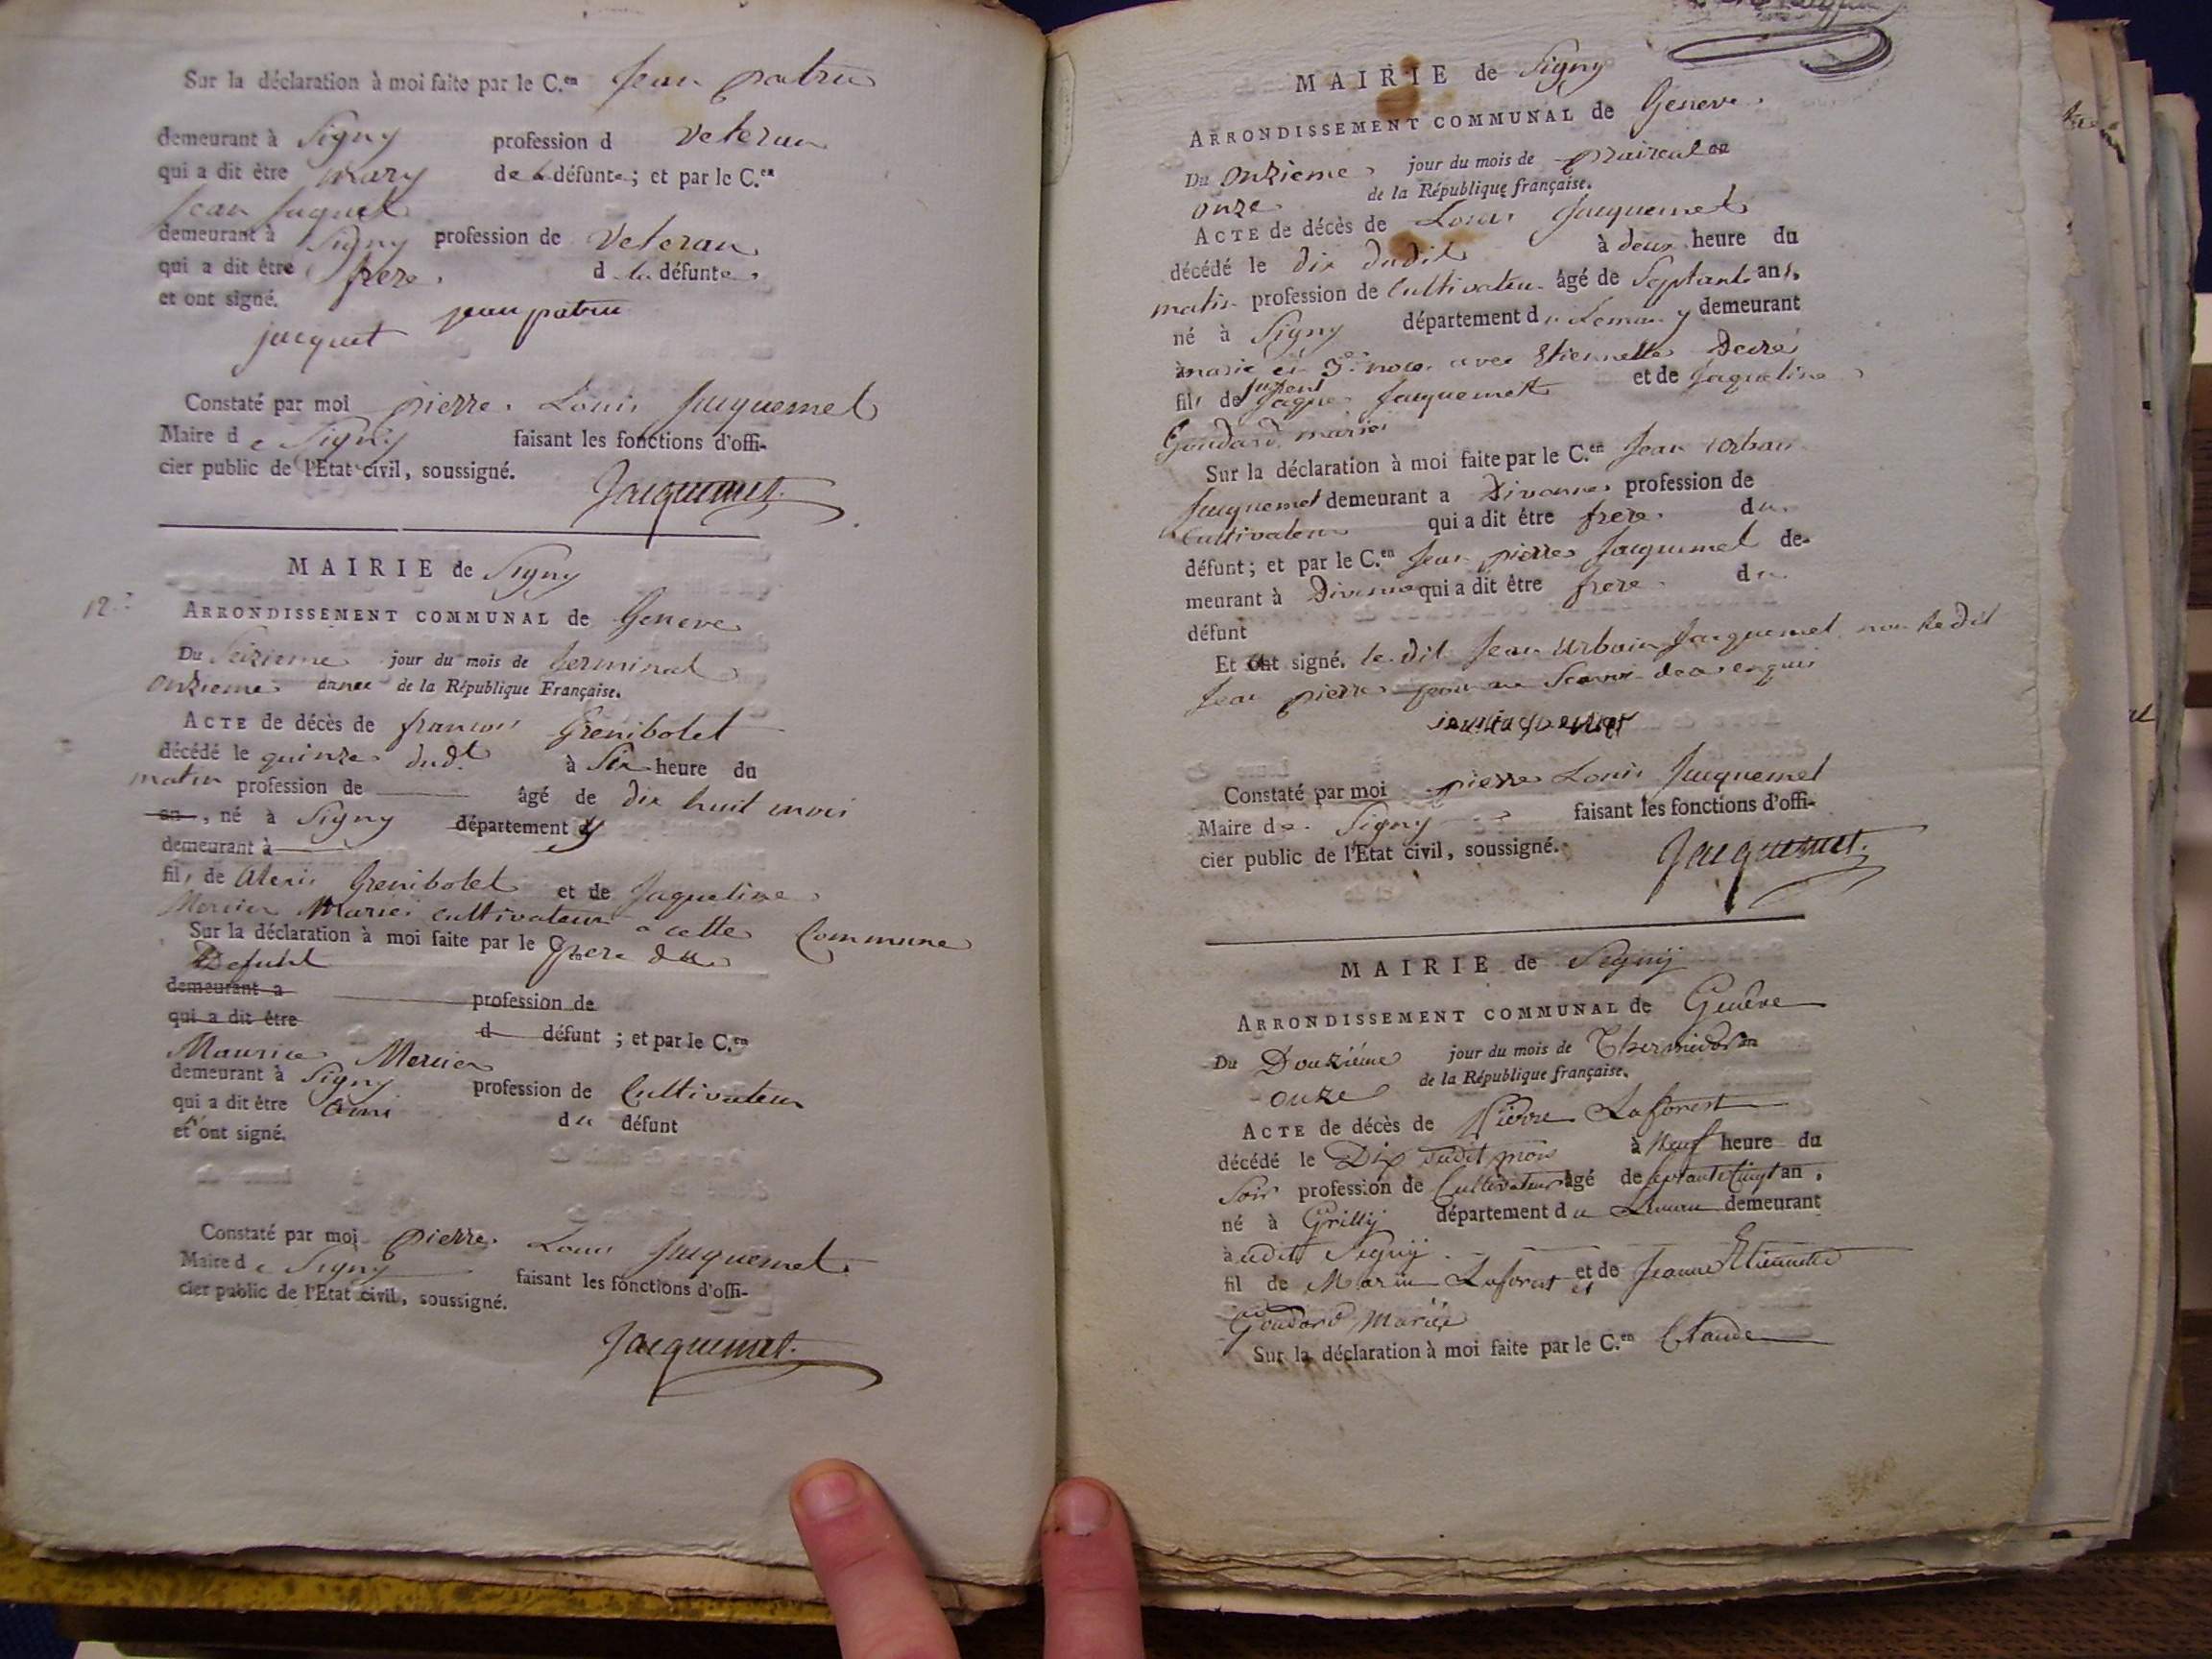 Sur la déclaration à moi faite par le C.en Jean patru
demeurant à Signy profession d Veteran
qui a dit être mary de la défunte; et par le C.en
Jean Jaquet
demeurant à Signy profession de Veteran
qui a dit être frere d la défunte.
et ont signé.
jacquet jean patru
Constaté par moi pierre Louis Jacquemet
Maire de Signy faisant les fonctions d'offi-
cier public de l'Etat civil, soussigné.
Jacquemet
MAIRIE de Signy
12.
ARRONDISSEMENT COMMUNAL de Geneve
Du Seizieme jour du mois de Germinal
onzieme année de la République Française.
ACTE de décès de francois Grenibolet
décédé le quinze dudt à Six heure du
matin profession de âgé de dix huit mois
an, né à Signy département d
demeurant à
fils de Alexis Grenibolet et de Jaqueline
Mercier Mariés cultivateur a cette Commune
Sur la déclaration à moi faite par le pere du
Defunt
demeurant a profession de
qui a dit être d défunt; et par le C.en
Maurice Mercier
demeurant à Signy profession de Cultivateur
qui a dit être ami du défunt
et ont signé.
Constaté par moi pierre Louis Jacquemet
Maire de Signy faisant les fonctions d'offi-
cier public de l'Etat civil, soussigné.
Jacquemet
MAIRIE de Signy
ARRONDISSEMENT COMMUNAL de Geneve
Du onzieme jour du mois de prairial an
onze de la République française.
ACTE de décès de Louis Jacquemet
décédé le dix dudit à deux heure du
matin profession de Cultivateur âgé de Septante ans,
né à Signy département du Leman y demeurant
à marié en 3e noce avec Etiennette
fils de Jaque Jacquemet et de Jaqueline
Goudard mariés
Sur la déclaration à moi faite par le C.en Jean Urbain
Jacquemet demeurant a Divonne profession de
Cultivateur qui a dit être frere du
défunt; et par le C.en Jean pierre Jacquemet de-
meurant à Divonne qui a dit être frere du
défunt
Et ont signé. le dit Jean Urbain Jacquemet non le dit
Jean pierre pour ne Scavoir de ce enquis
Constaté par moi pierre Louis Jacquemet
Maire de Signy faisant les fonctions d'offi-
cier public de l'Etat civil, soussigné.
Jacquemet
MAIRIE de Segny
ARRONDISSEMENT COMMUNAL de Genève
Du Douziéme jour du mois de Thermidor an
onze de la République française.
ACTE de décès de Pierre Laforest
décédé le Dix dudit mois à Neuf heure du
Soir profession de Cultivateur âgé de septante Cinq an,
né à Grilly département du Leman demeurant
audit Segny
fil de Marin Laforest et de Jeanne Etiennette
Goudard Mariés
Sur la déclaration à moi faite par le C.en Claude